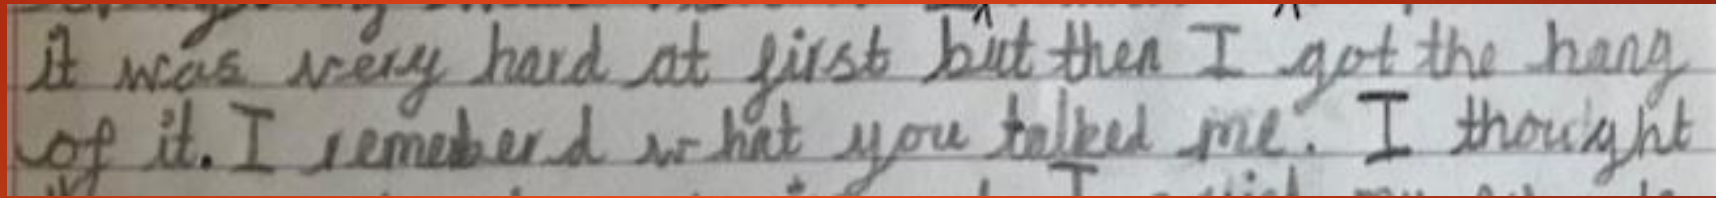 it was very hard at first but then I got the hang
of it. I remeberd what you talked me. I thought